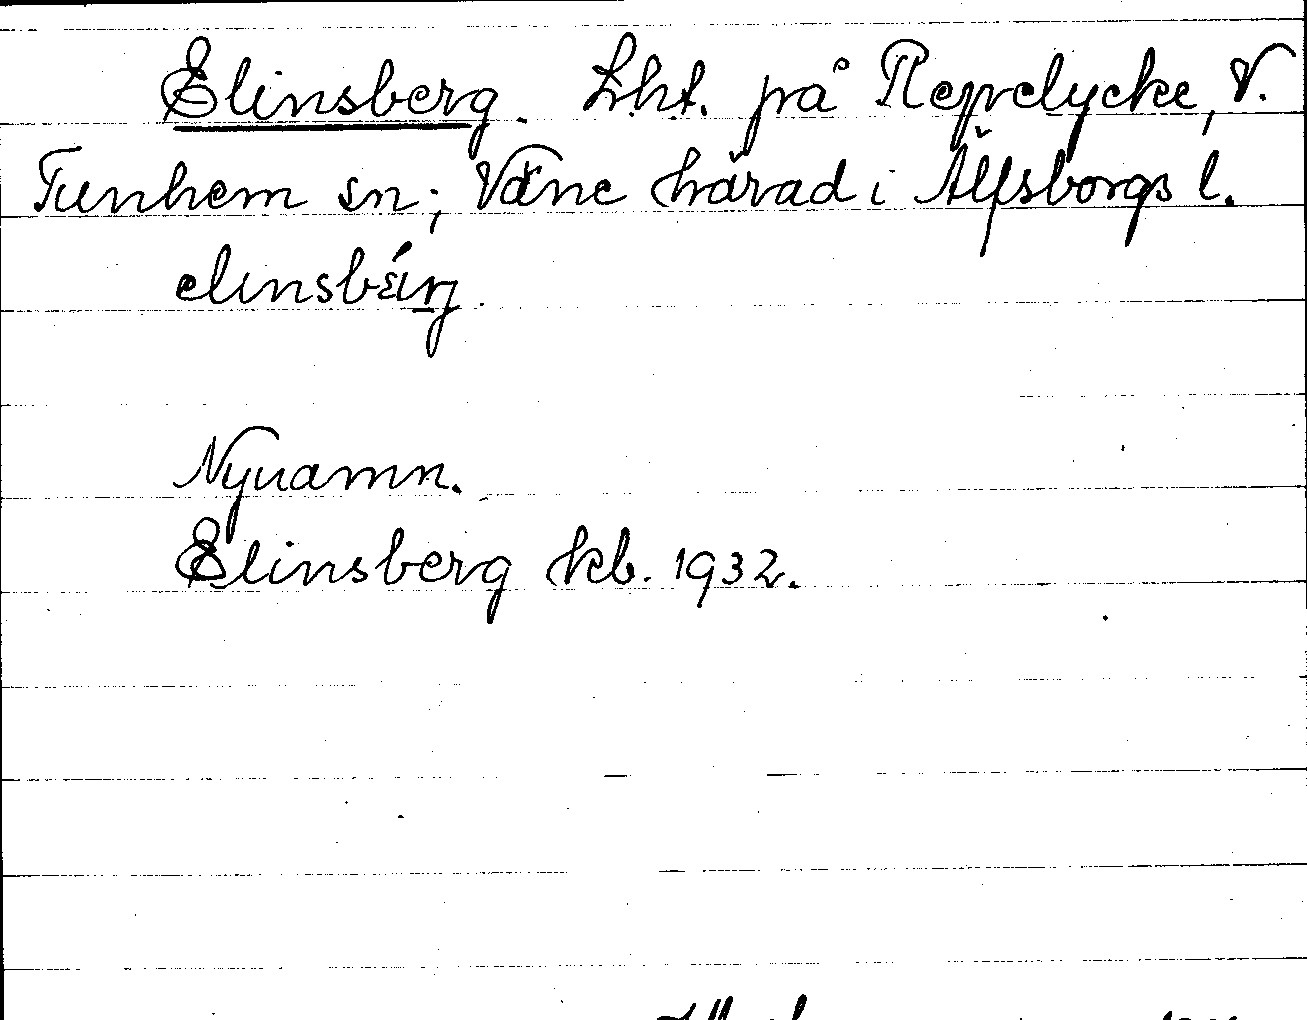 Elinsberg. Lht. på Repelycke, V.
Tunhem sn; Väne härad i Älfsborgs l.
Nynamn.
Elinsberg kb. 1932.